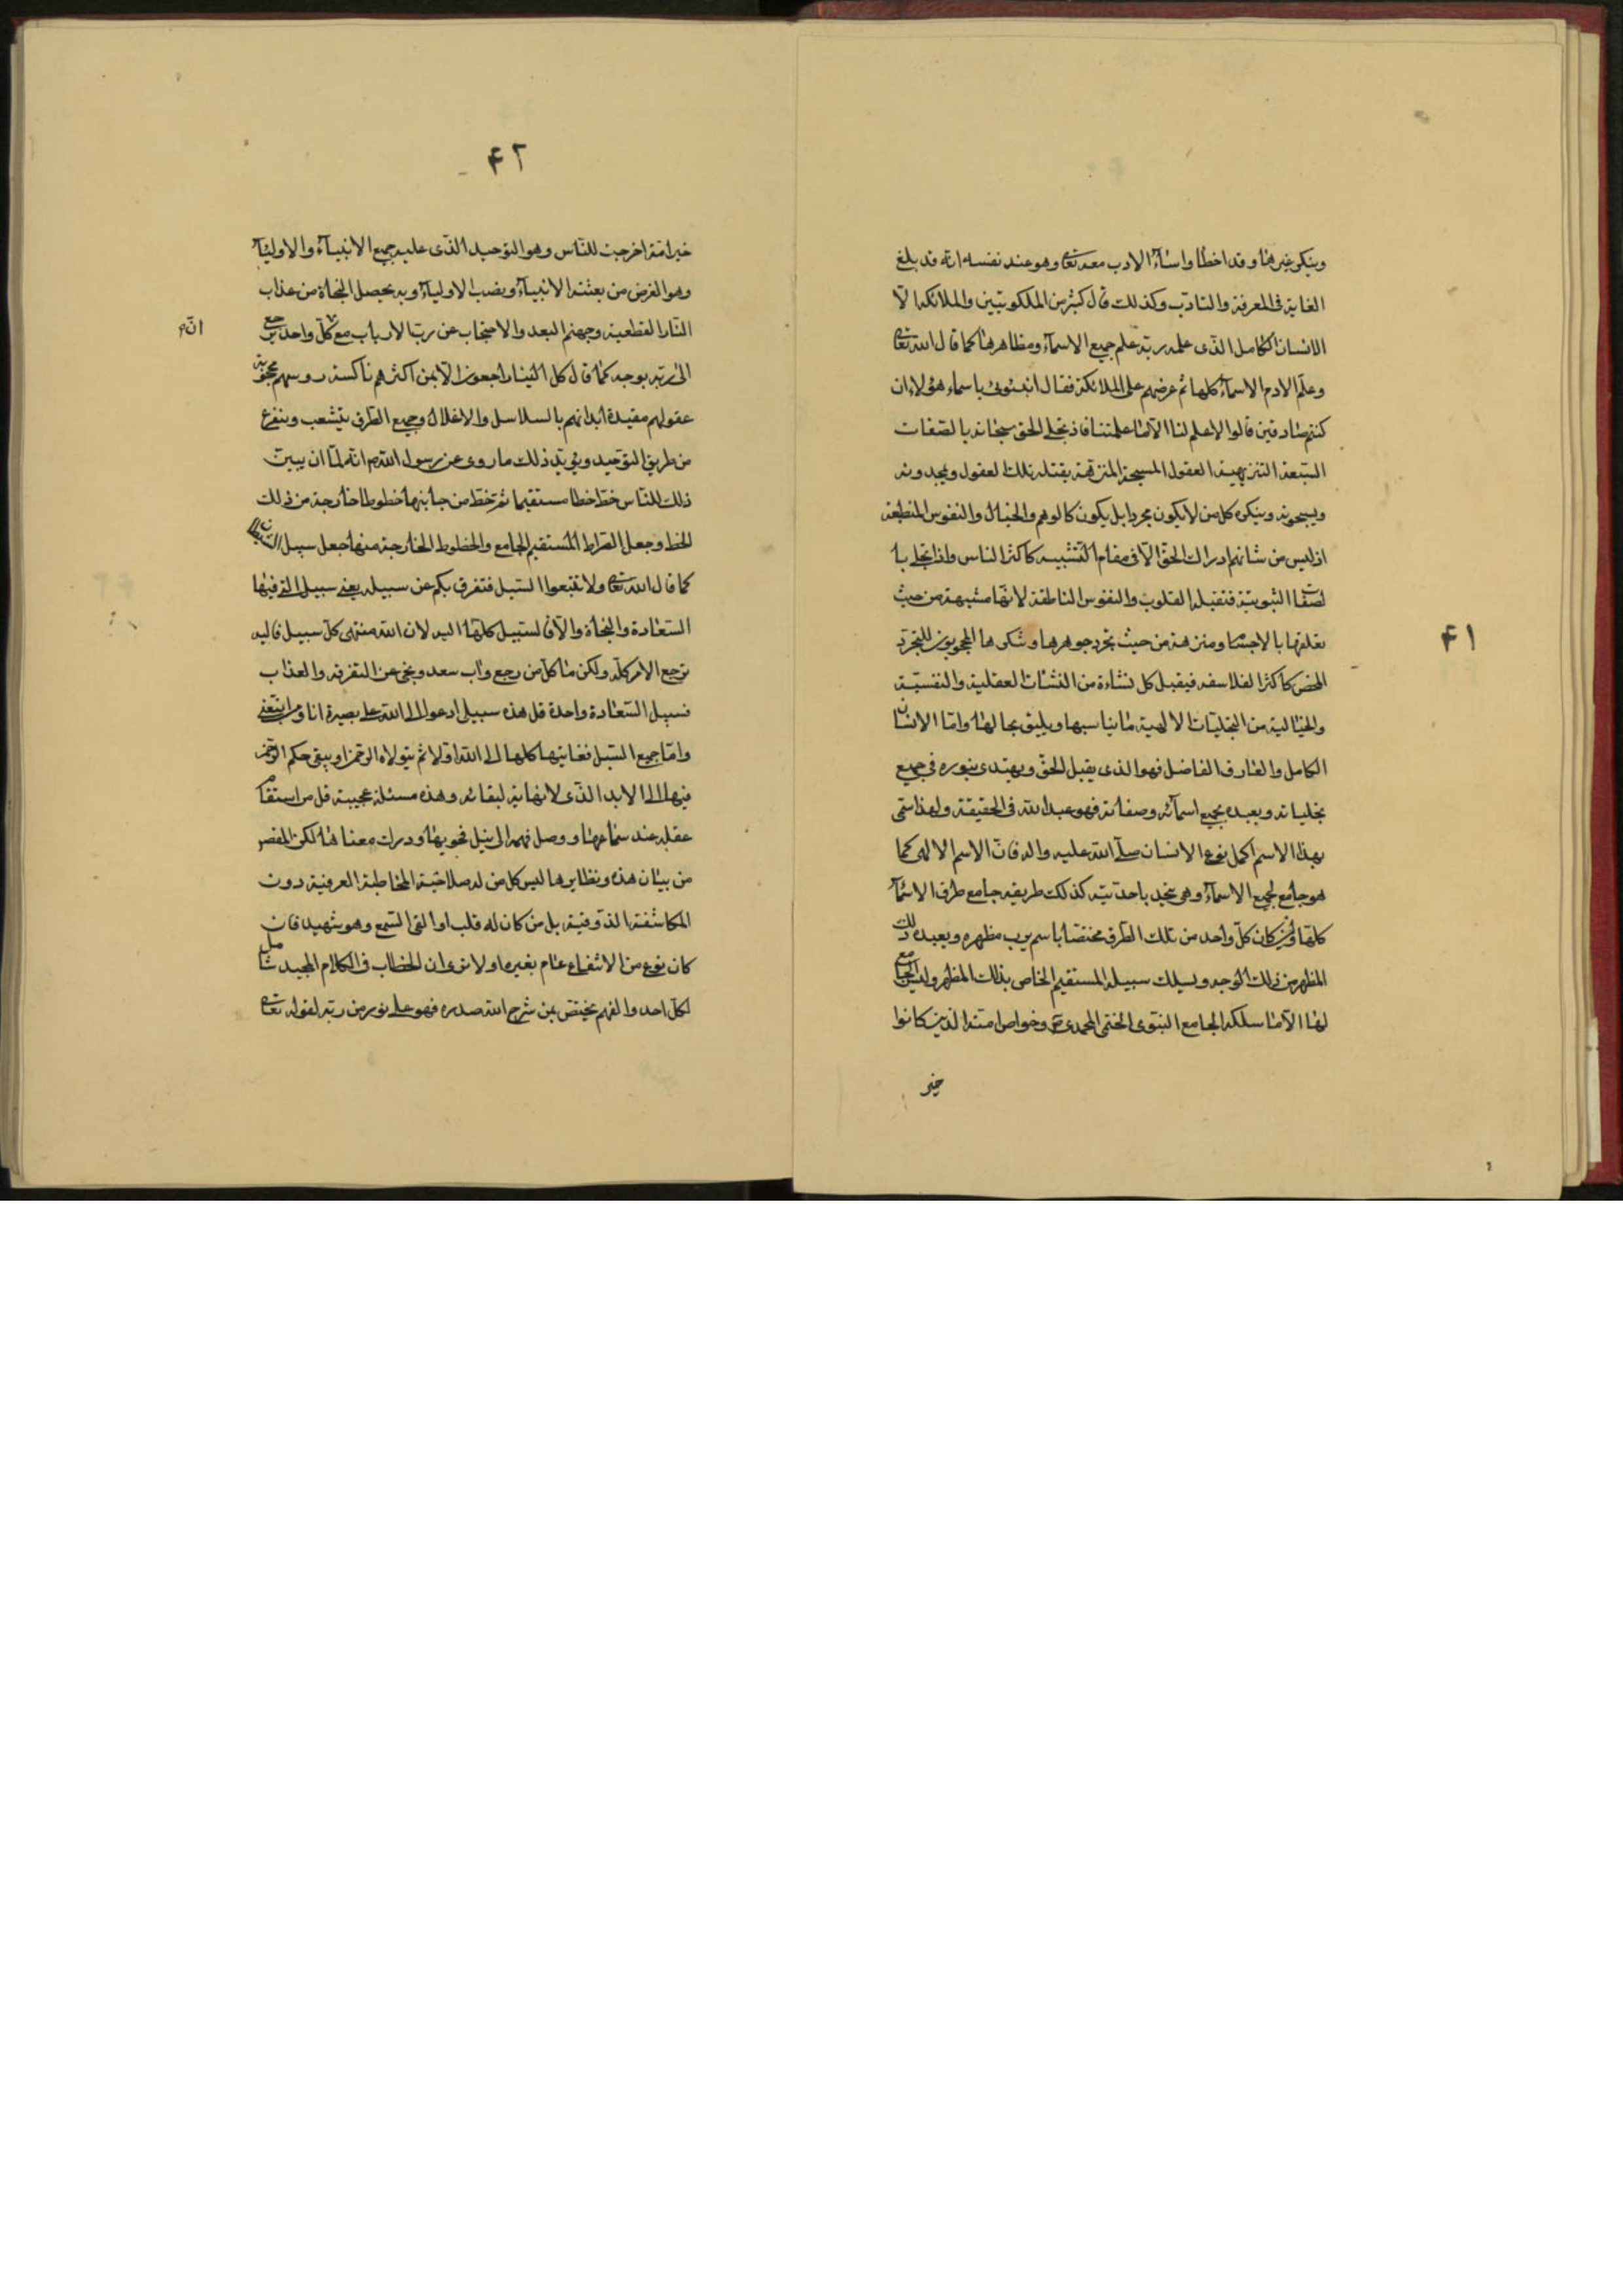 ۴۱
وينكر غيرها وقد اخطا واساء الادب معه تعالى وهو عند نفسه انه قد بلغ
الغاية فى المعرفة والتادب وكذلك قال كثير من الملكوتيين والملائكه الّا
الانسان الكامل الذى علمه ربه علم جميع الاسماء ومظاهرها كما قال الله تعالى
وعلم الادم الاسماء كلها ثم عرضهم على الملائكة فقال انبئونى باسماء هؤلاء ان
كنتم صادقين قالوا لا علم لنا الّا ما علمتنا فاذ تجلى الحق سبحانه بالصفات
السلبية التنزيهية العقول المسبحة المنزهة يقبله تلك العقول ويمجدونه
ويسبحونه وينكره كل من لا يكون مجردا بل يكون كالوهم والخيال والنفوس المنطبعة
اذ ليس من شانهم ادراك الحق الّا فى مقام التشبيه كاكثر الناس واذا تجلى با
لصفات الثبوتية فتقبله القلوب والنفوس الناطقة لانها مشبهة من حيث
تعلقها بالاجسام ومنزهة من حيث تجرد جوهرها وتنكرها المحجوبون للتجرد
المحض كاكثر الفلاسفه فيقبل كل نشاءة من النشئات العقلية والنفسية
والخيالية من التجليات الالهية ما يناسبها ويليق بحالها وامّا الانسان
الكامل والعارف الفاضل فهو الذى يقبل الحق ويهتدى بنوره فى جميع
تجلياته ويعبده بجميع اسمائه وصفاته فهو عبد الله فى الحقيقة ولهذا سمى
بهذا الاسم اكمل نوع الانسان صلّى الله عليه واله فان الاسم الالهى كما
هو جامع لجميع الاسماء وهى تتحد باحديته كذلك طريقه جامع طرق الاسماء
كلها وان كان كل واحد من تلك الطرق مختصا باسم يرب مظهره ويعبده ذلك
المظهر من ذلك الوجه ويسلك سبيله المستقيم الخاص بذلك المظهر وليس الجامع
لها الّا ما سلكه الجامع النبوى الختمى المحمدى وخواص امته الذين كانوا
خير
۴۲
خير امة اخرجت للناس وهو التوحيد الذى عليه جميع الانبياء والاولياء
وهو الغرض من بعثة الانبياء ونصب الاولياء وبه يحصل النجاة من عذاب
النار القطعية وجهنم البعد والاحتجاب عن رب الارباب مع كل واحد يرجع
انه
الى ربه بوجه كما قال كل الينا راجعون الّا بمن اكثرهم ناكسة رؤسهم محجوبة
عقولهم مقيدة ابدانهم بالسلاسل والاغلال وجميع الطرق يتشعب ويتفرع
من طريق التوحيد ويؤيد ذلك ما روى عن رسول الله ص انه لما ان يبين
ذلك للناس خط خطا مستقيما ثم خط من جانبها خطوطا خارجة من ذلك
الخط وجعل الصراط المستقيم الجامع والخطوط الخارجة منها جعل سبيل الشيطان
كما قال الله تعالى ولا تتبعوا السبل فتفرق بكم عن سبيله يعنى سبيل التى فيها
السعادة والنجاة والّا فالسبيل كلها اليه لان الله منتهى كل سبيل فاليه
يرجع الامر كله ولكن ما كل من رجع واب سعد ونجى عن التفرقه والعذاب
فسبيل السعادة واحدة قل هذه سبيلى ادعوا الى الله على بصيرة انا ومن اتبعنى
وامّا جميع السبل فغايتها كلها الى الله اولا ثم يتولاه الرحمن ويبقى حكم الرحمن
فيها الى الابد الذى لا نهاية لبقائه وهذه مسئلة عجيبة قل من استقام
عقله عند سماعها ووصل فهمه الى نيل فحويها ودرك معناها لكن المفصر
من بيان هذه ونظايرها ليس كل من له صلاحية المخاطبة العرفية دون
المكاشفة الذوقية بل من كان له قلب او القى السمع وهو شهيد فان
كان نوع من الانتفاع عام بغيره اولا ترى ان الخطاب فى الكلام المجيد شامل
لكل احد والفهم يختص بمن شرح الله صدره فهو على نور من ربه لقوله تعالى